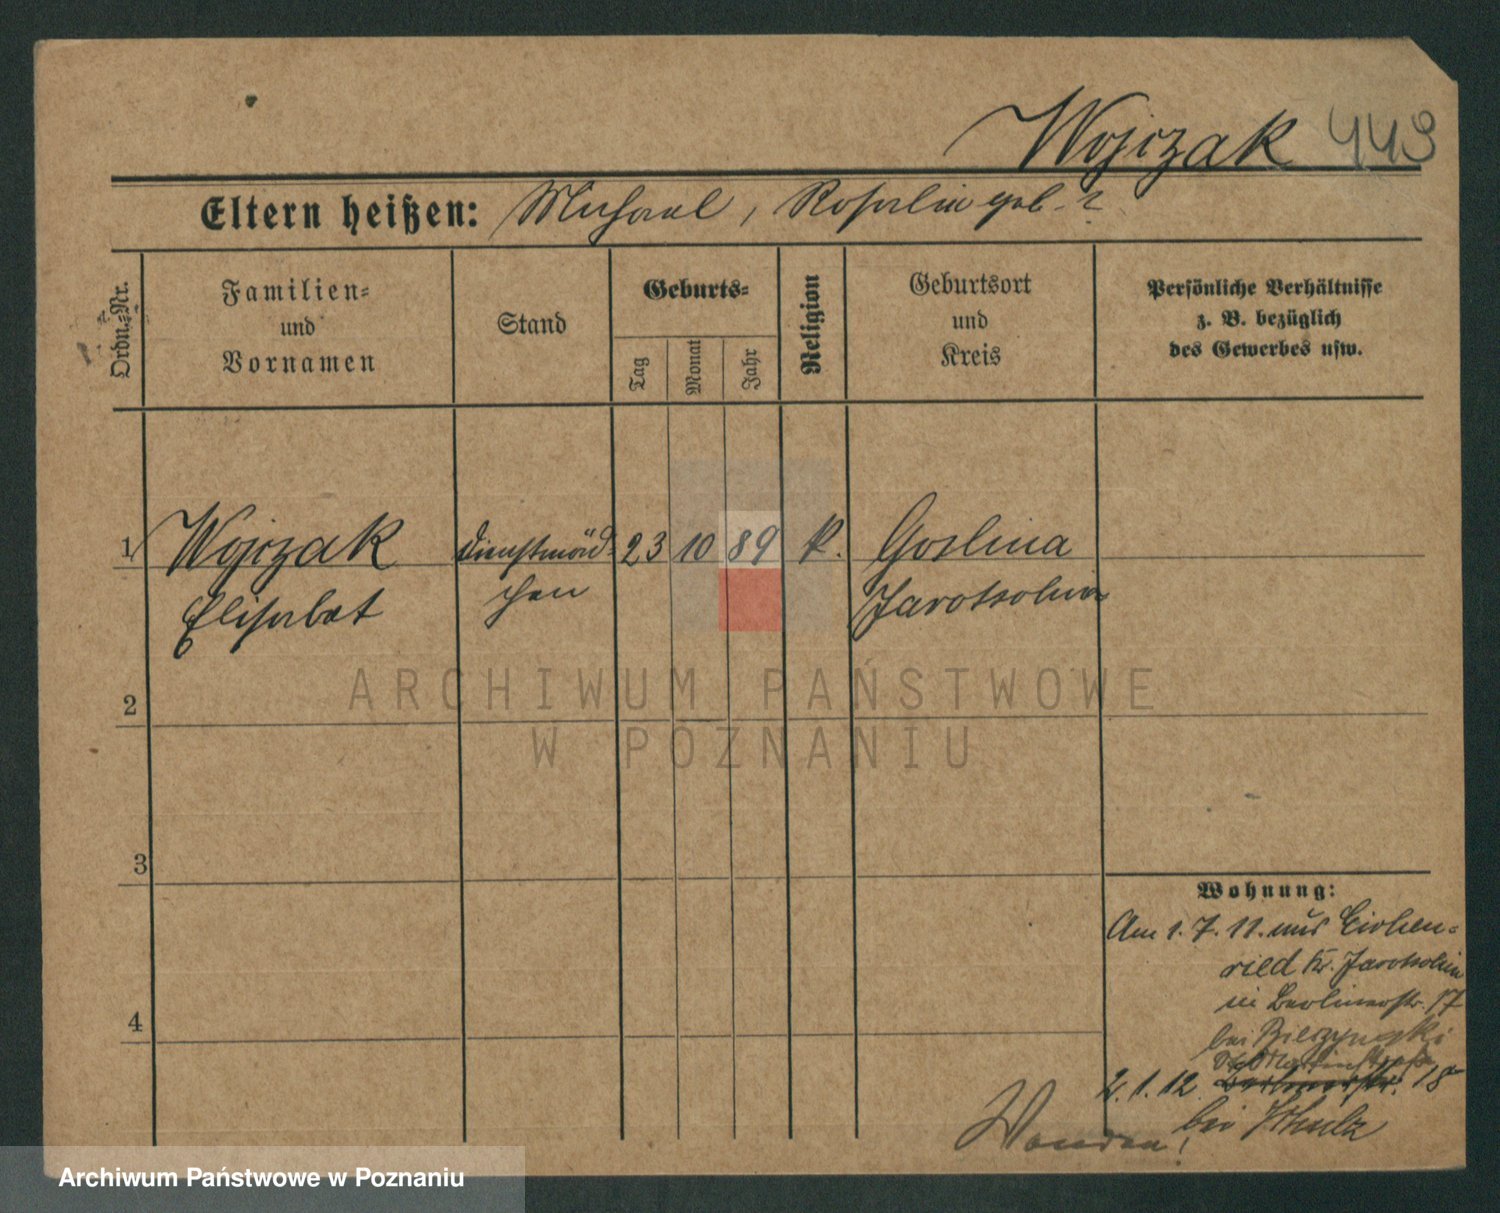 Wojczak 443
Eltern heißen: Michael, Rosalie geb. ?
Ordn.-Nr.
Familien-
und
Vornamen
Stand
Geburts-
Tag
Monat
Jahr
Religion
Geburtsort
und
Kreis
Persönliche Verhältnisse
z. B. bezüglich
des Gewerbes usw.
1 Wojczak Dienstmäd- 23 10 89 k. Goslina
Elisabet chen Jarotschin
2
ARCHIWUM PAŃSTWOWE
W POZNANIU
3
Wohnung:
Am 1.7.11. aus Eichen-
ried Kr. Jarotschin
in Berlinerstr. 17
4
bei
2.1.12. Berlinerstr. 18
bei Schulz
Wenden!
Archiwum Państwowe w Poznaniu